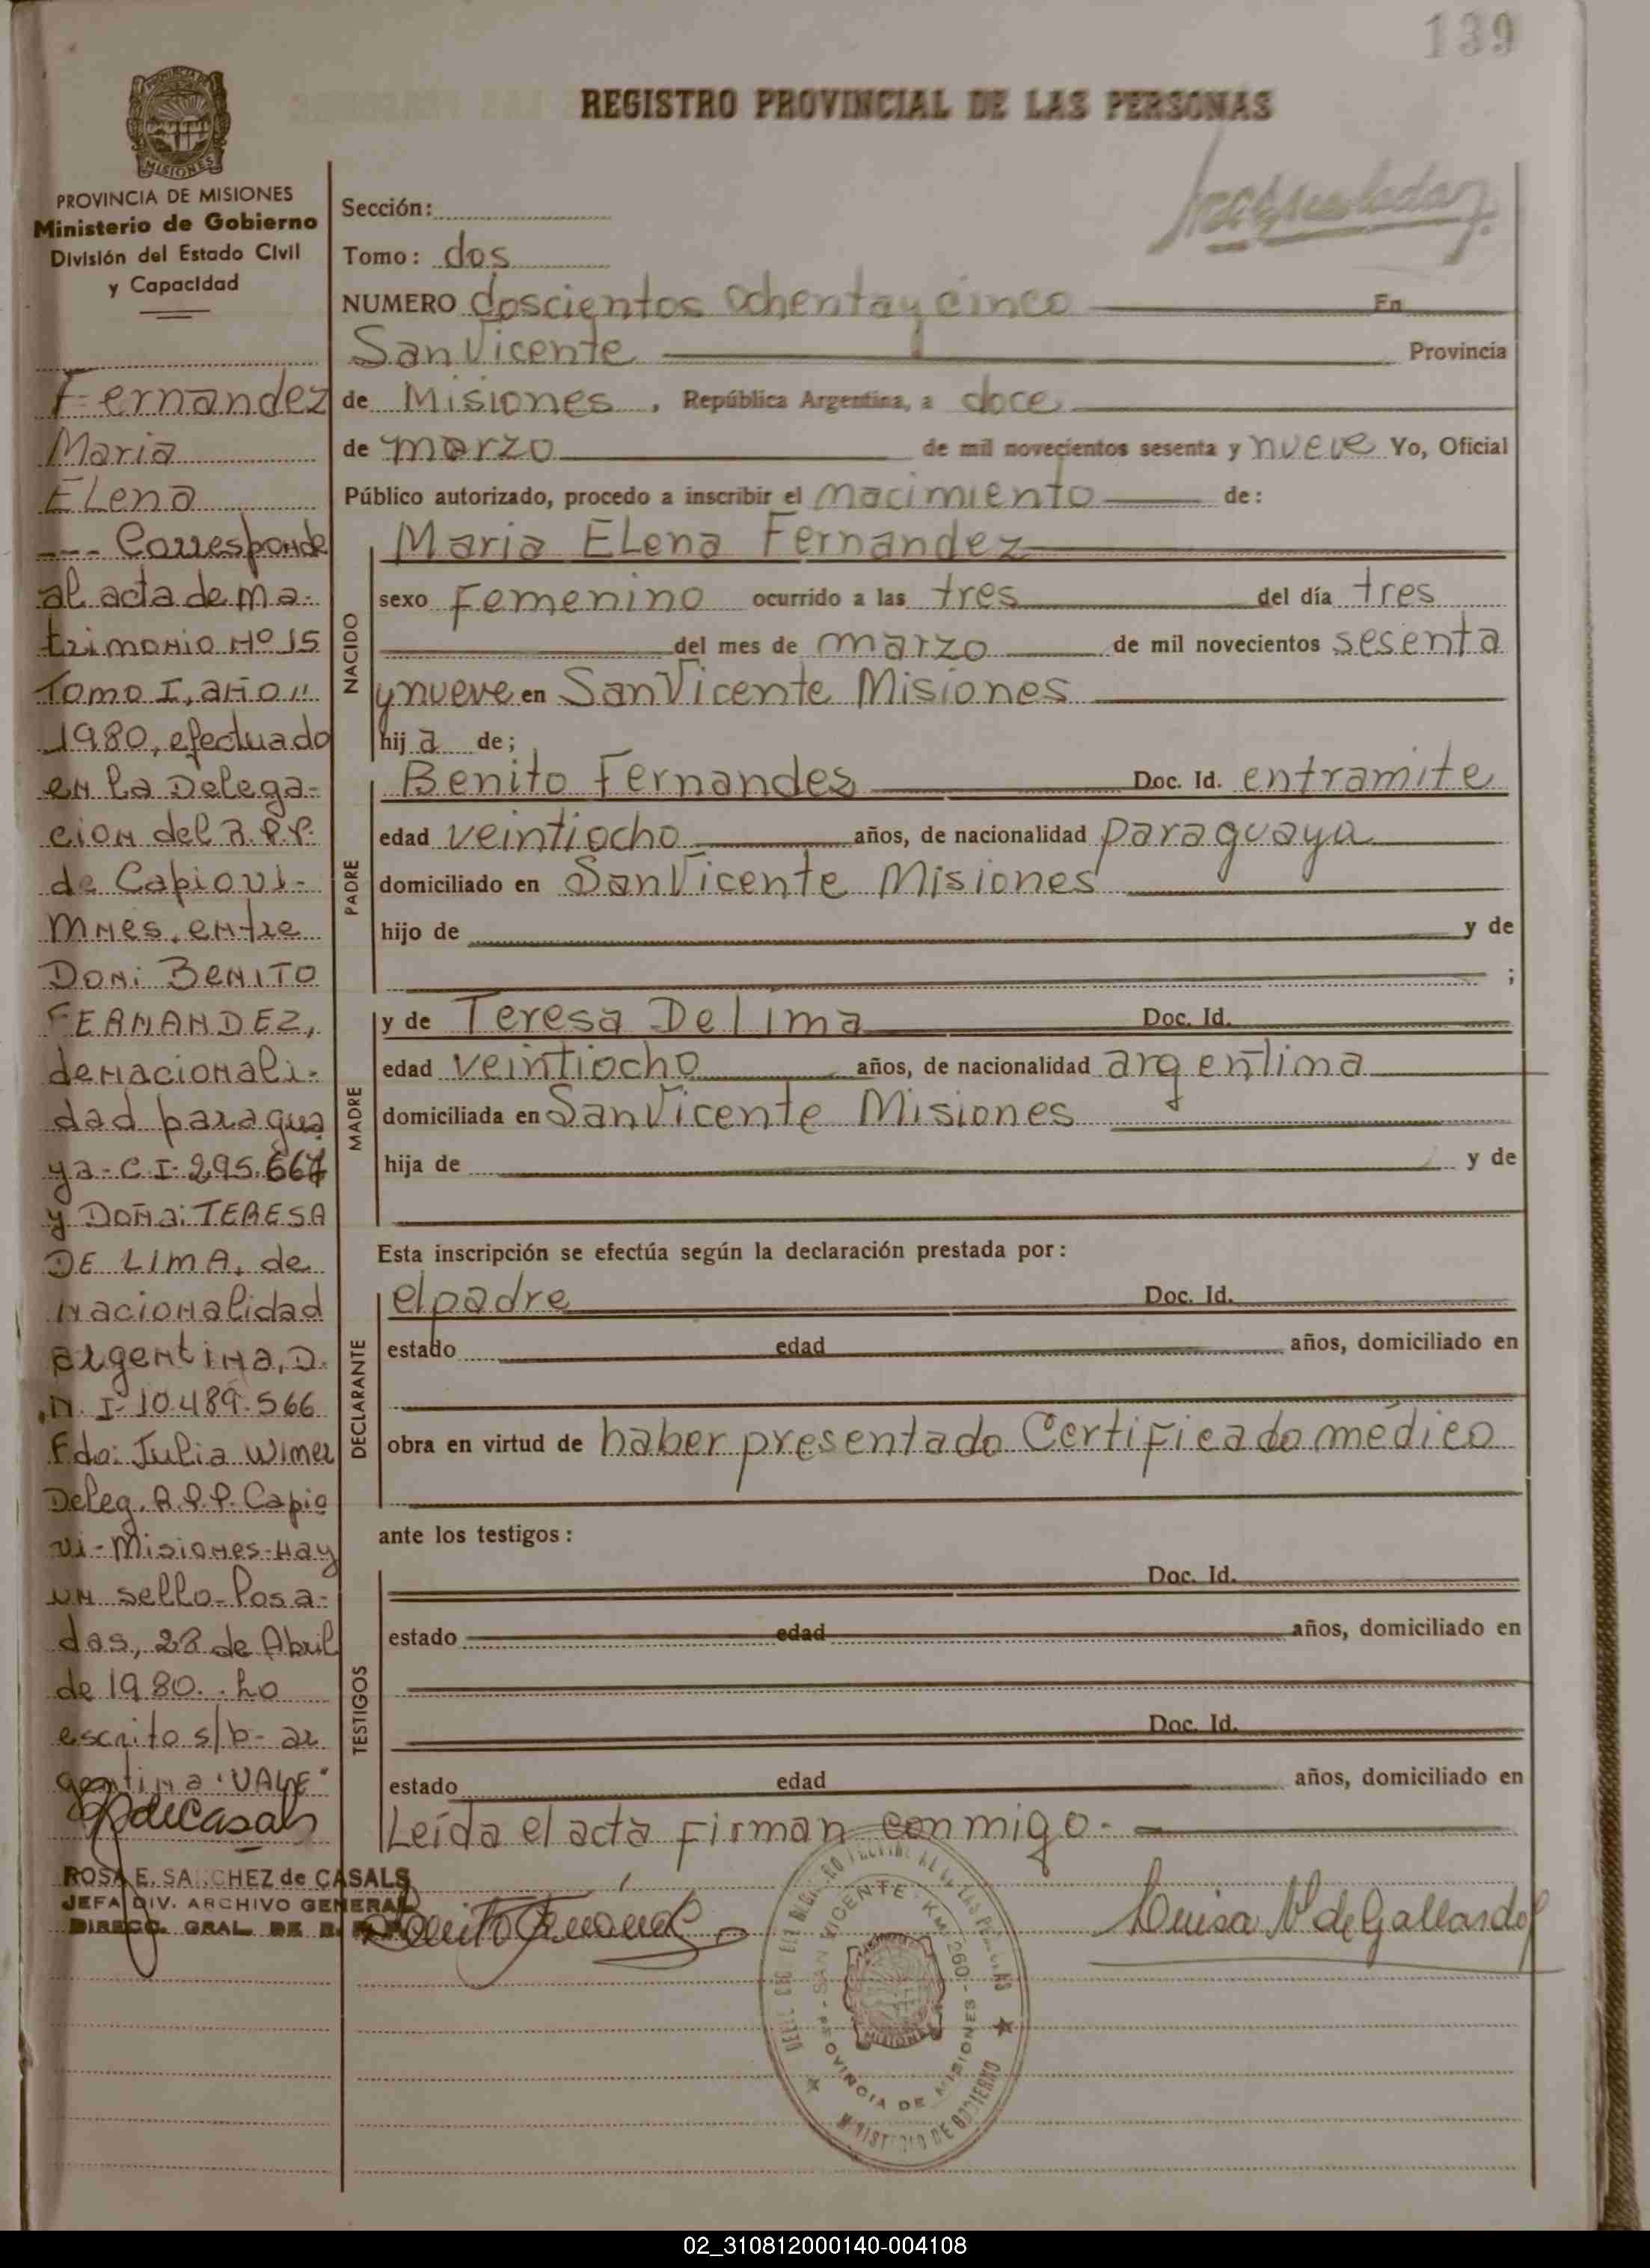 139
REGISTRO PROVINCIAL DE LAS PERSONAS
MISIONES
PROVINCIA DE MISIONES
Ministerio de Gobierno
División del Estado Civil
y Capacidad
Fernandez
Maria
ELena
--- Corresponde
al acta de ma-
trimonio Nº 15
Tomo I, año "
1980, efectuado
en la Delega-
cion del R.P.P.
de Capiovi-
Mnes. entre
Don: BENITO
FERNANDEZ,
de nacionali-
dad paragua
ya- C I- 295.667
y Doña: TERESA
DE LIMA, de
nacionalidad
argentina, D.
N. I- 10.489.566
Fdo: Julia Wimer
Deleg. R.P.P. Capio
vi- Misiones- Hay
un sello- Posa-
das, 28 de Abril
de 1980.. Lo
escrito s/b- ar
gentina "VALE"
ROSA E. SANCHEZ de CASALS
JEFA DIV. ARCHIVO GENERAL
DIRECC. GRAL. DE
Sección:
Tomo: dos
NUMERO doscientos ochenta y cinco En
San Vicente Provincia
de Misiones, República Argentina, a doce
de marzo de mil novecientos sesenta y nueve Yo, Oficial
Público autorizado, procedo a inscribir el nacimiento de:
NACIDO
Maria ELena Fernandez
sexo Femenino ocurrido a las tres del día tres
del mes de marzo de mil novecientos sesenta
y nueve en San Vicente Misiones
hij a de;
PADRE
Benito Fernandes Doc. Id. entramite
edad veintiocho años, de nacionalidad paraguaya
domiciliado en San Vicente Misiones
hijo de y de
;
MADRE
y de Teresa De lima Doc. Id.
edad veintiocho años, de nacionalidad argentina
domiciliada en San Vicente Misiones
hija de y de
Esta inscripción se efectúa según la declaración prestada por:
DECLARANTE
el padre Doc. Id.
estado edad años, domiciliado en
obra en virtud de haber presentado Certificado médico
ante los testigos:
TESTIGOS
Doc. Id.
estado edad años, domiciliado en
Doc. Id.
estado edad años, domiciliado en
Leída el acta firman conmigo.-
Luisa N de Gallardo
SAN VICENTE - KM. 260 -
PROVINCIA DE MISIONES
MINISTERIO DE GOBIERNO
MISIONES
02_310812000140-004108